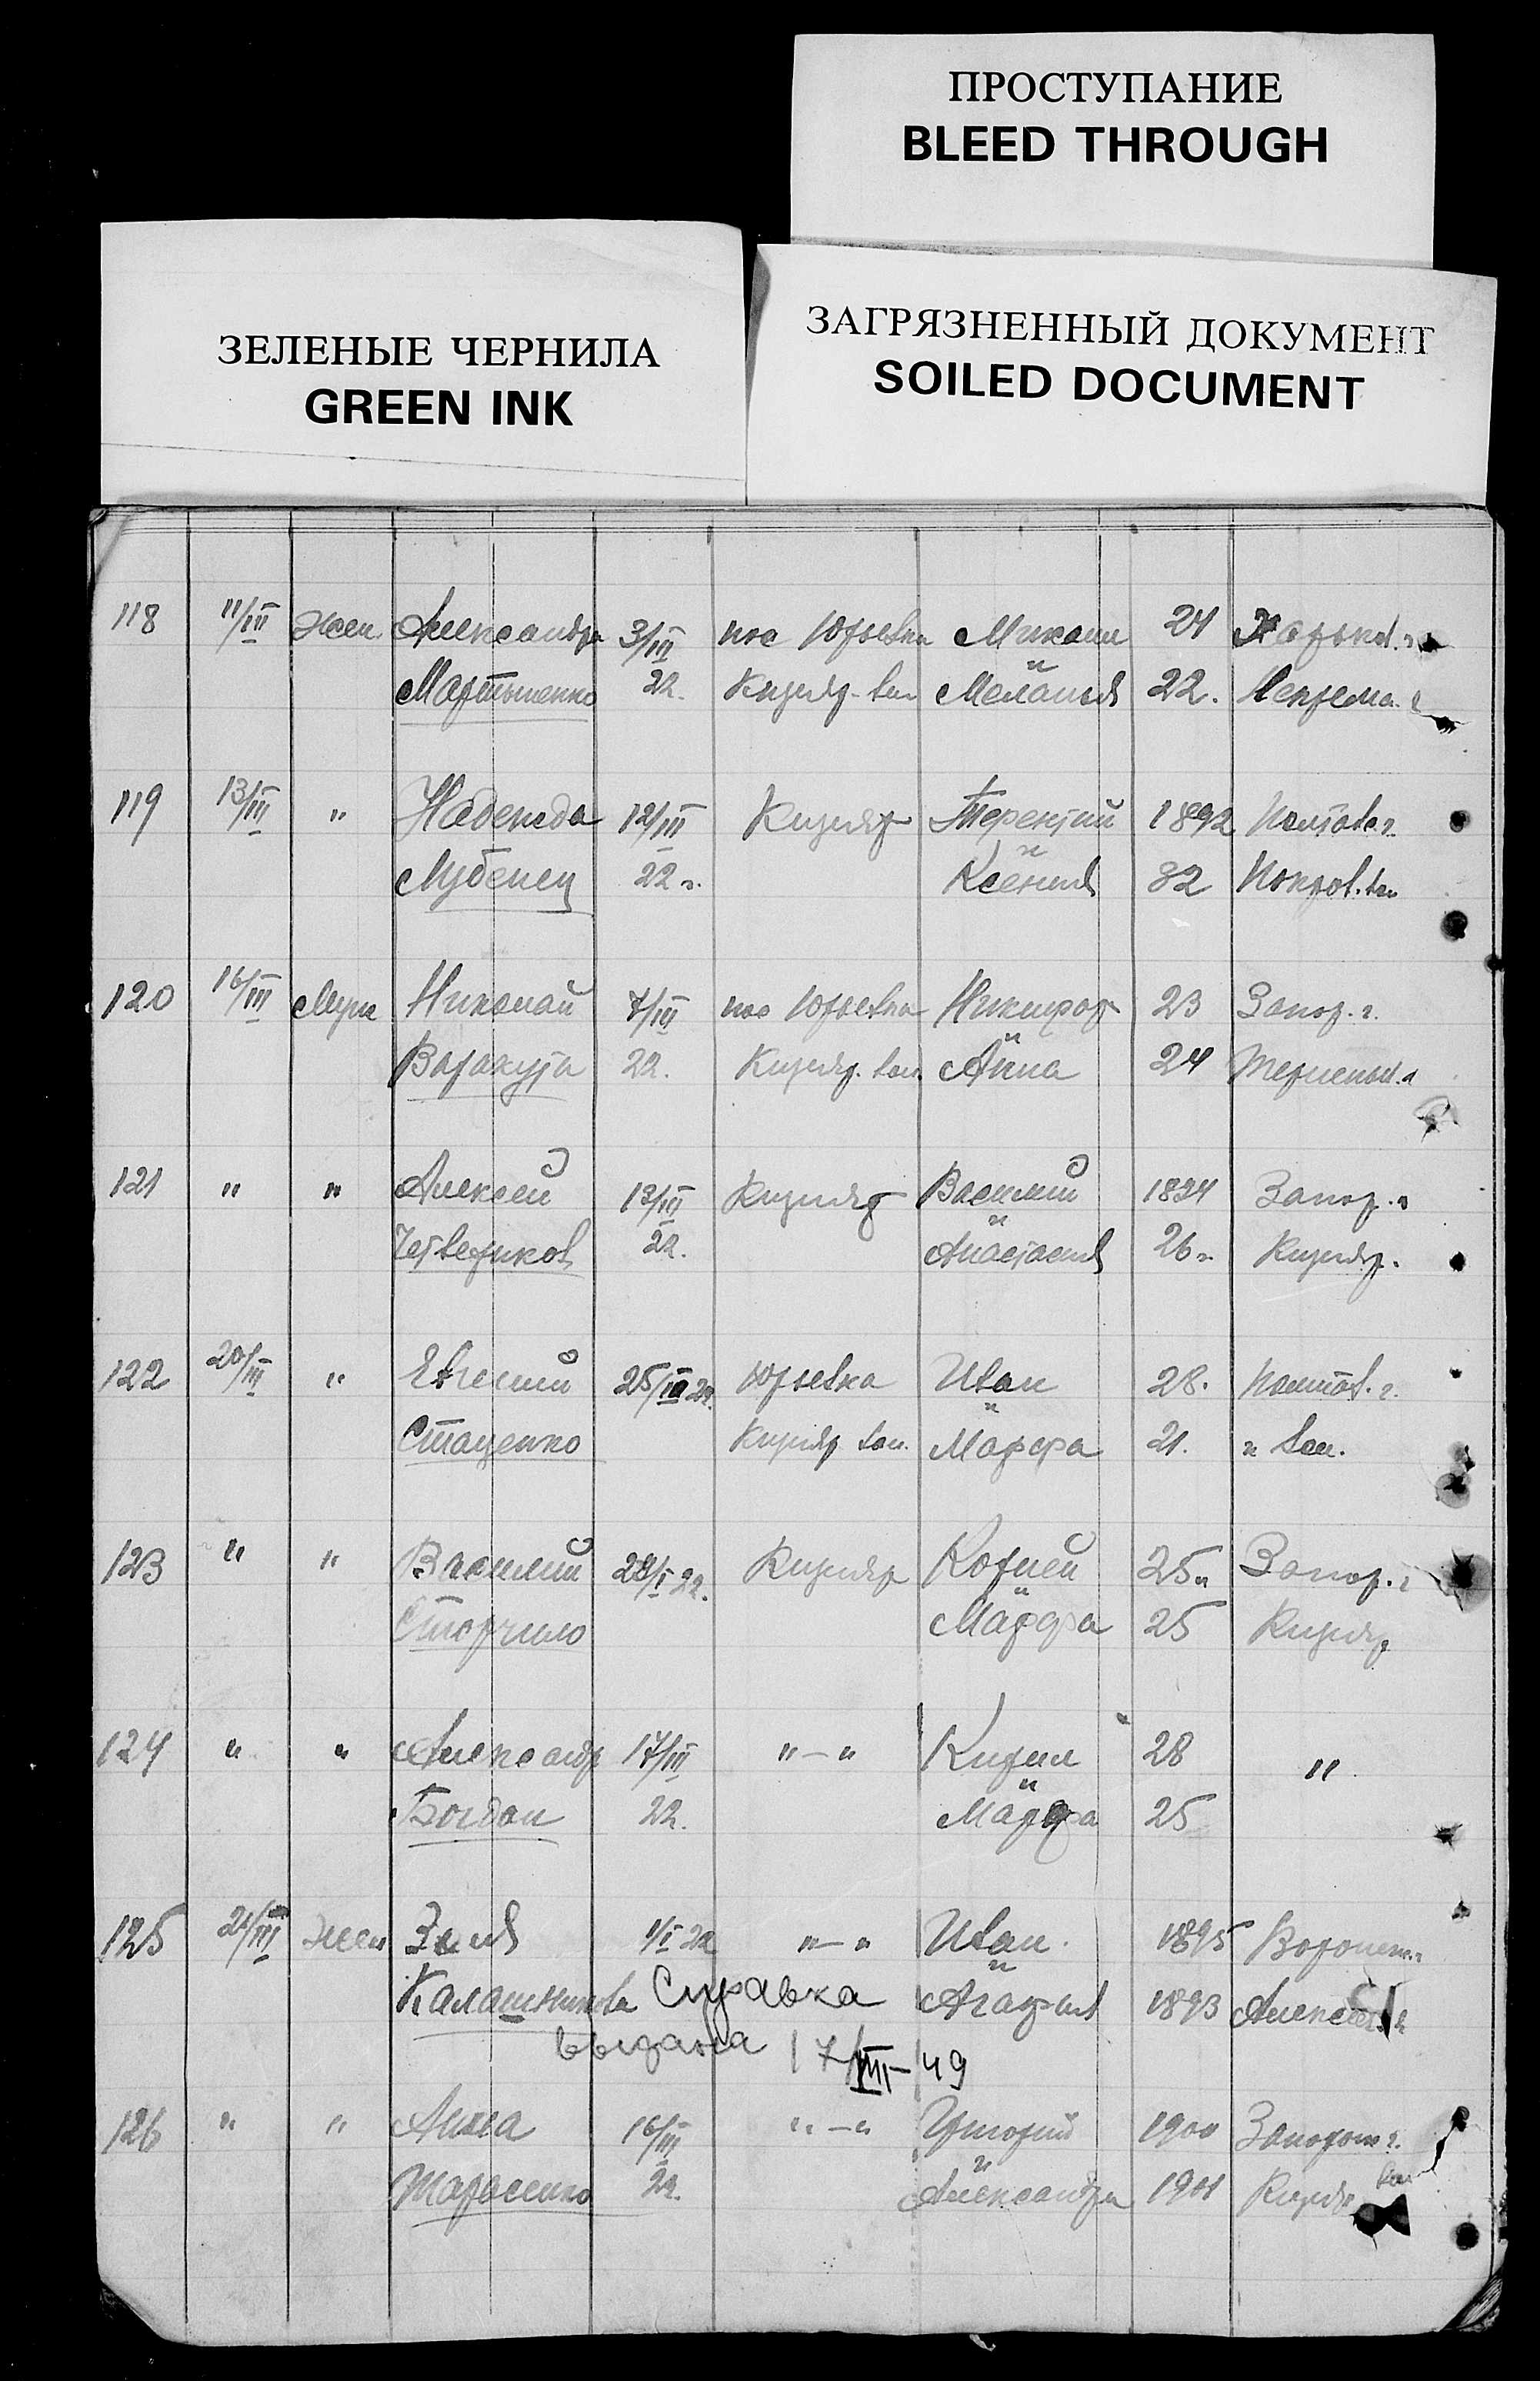 ПРОСТУПАНИЕ
BLEED THROUGH
ЗЕЛЕНЫЕ ЧЕРНИЛА
GREEN INK
ЗАГРЯЗНЕННЫЙ ДОКУМЕНТ
SOILED DOCUMENT
118 11/III Жен. Александра 3/III пос Юрьевка Михаил 24 Харьков. г.
Мартыненко 22. Кизияр. вол и Меланья 22.
119 13/III " Надежда 12/III Кизияр Терентий 1892 Полтав. г.
Лубенец 22 г. и Ксения 32 Покров. вол
120 16/III Муж Николай 7/III пос Юрьевка Никифор 23 Запор. г.
Варакута 22. Кизияр. вол. и Анна 24
121 " " Алексей 13/III Кизияр Василий 1894 Запор. г
Четвериков 22. и Анастасия 26 г. Кизияр.
122 20/III " Евгений 25/II 22. Юрьевка Иван 28. Полтав. г.
Стаценко Кизияр вол. и Марфа 21. и вол.
123 " " Василий 28/I 22. Кизияр Корней 25 г Запор. г
Сторчило и Марфа 25 Кизияр
124 " " Александр 17/III "—" Кирил 28 "
Богдан 22. и Марфа 25
125 21/III Жен Зина 1/I 22 "—" Иван 1895 Воронеж. г
Калашникова Справка и Агафья 1893
выдана 17/VIII-49
126 " " Анна 16/III "—" Григорий 1900 Запорож г.
Тарасенко 22. и Александра 1901 Кизияр вол